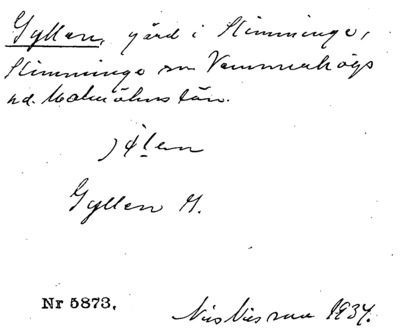 Gyllen, gård i Slimminge,
Slimminge sn Vemmenhögs
hd. Malmöhus län.
Gyllen M.
Nr 5873.
1934.